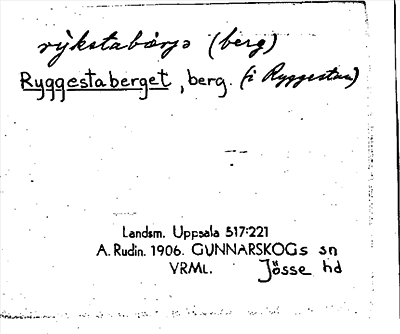 rýkstabärjə (berg)
Ryggestaberget, berg. (i Ryggestan)
Landsm. Uppsala 517:221
A. Rudin. 1906. GUNNARSKOGs sn
VRML. Jösse hd